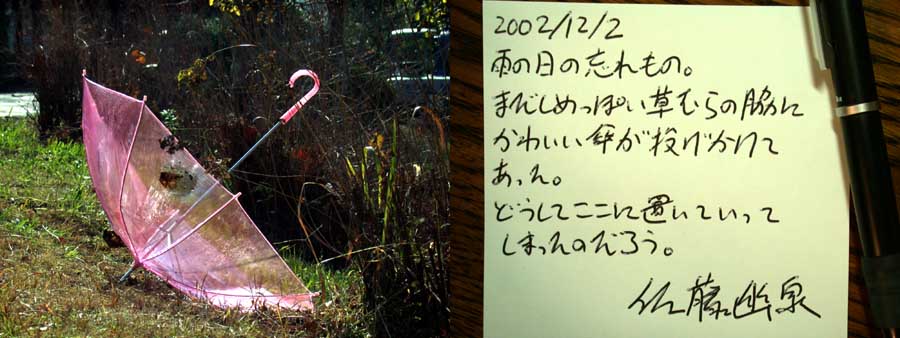 2002/12/2
雨の日の忘れもの。
まだしめっぽい草むらの脇に
かわいい傘が投げかけて
あった。
どうしてここに置いていって
しまったのだろう。
佐藤幽泉